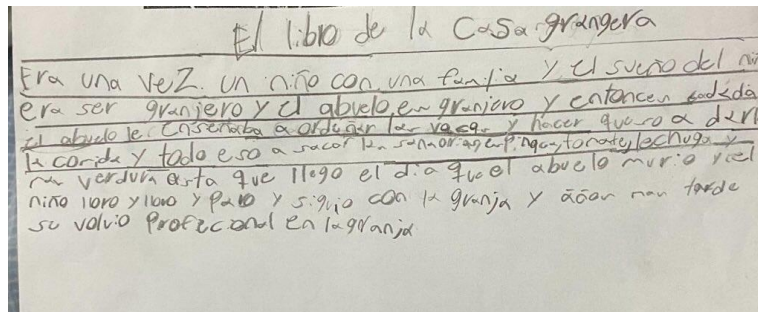 El libro de la Casa grangera
Era una veZ. un niño con una familia y el sueño del ni
era ser granjero y el abuelo, en granjero y entonces cada da
el abuelo le enseñaba a ordeñar las vacas y hacer queso a darl
la comida y todo eso a sacar las sanaorias tomate, lechuga y
mas verdura asta que llego el dia que el abuelo murio y el
niño lloro y lloro y paro y siguio con la granja y años mas tarde
se volvio profecional en la granja